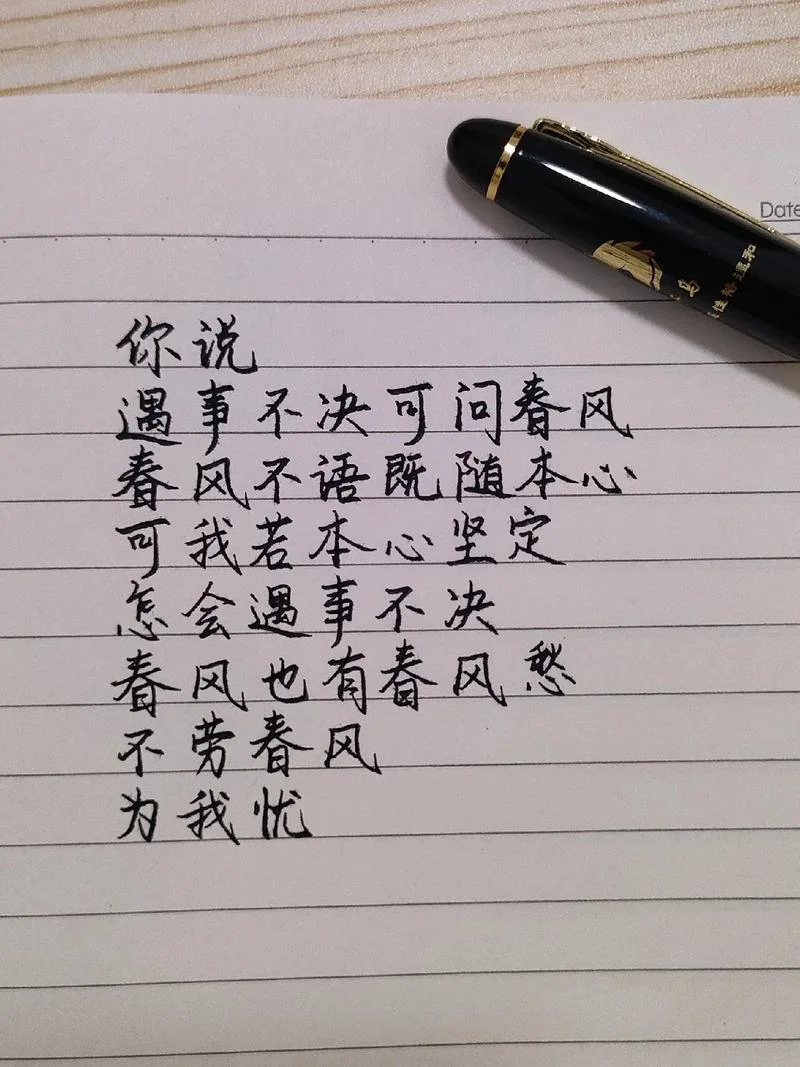 Date
你说
遇事不决可问春风
春风不语既随本心
可我若本心坚定
怎会遇事不决
春风也有春风愁
不劳春风
为我忧